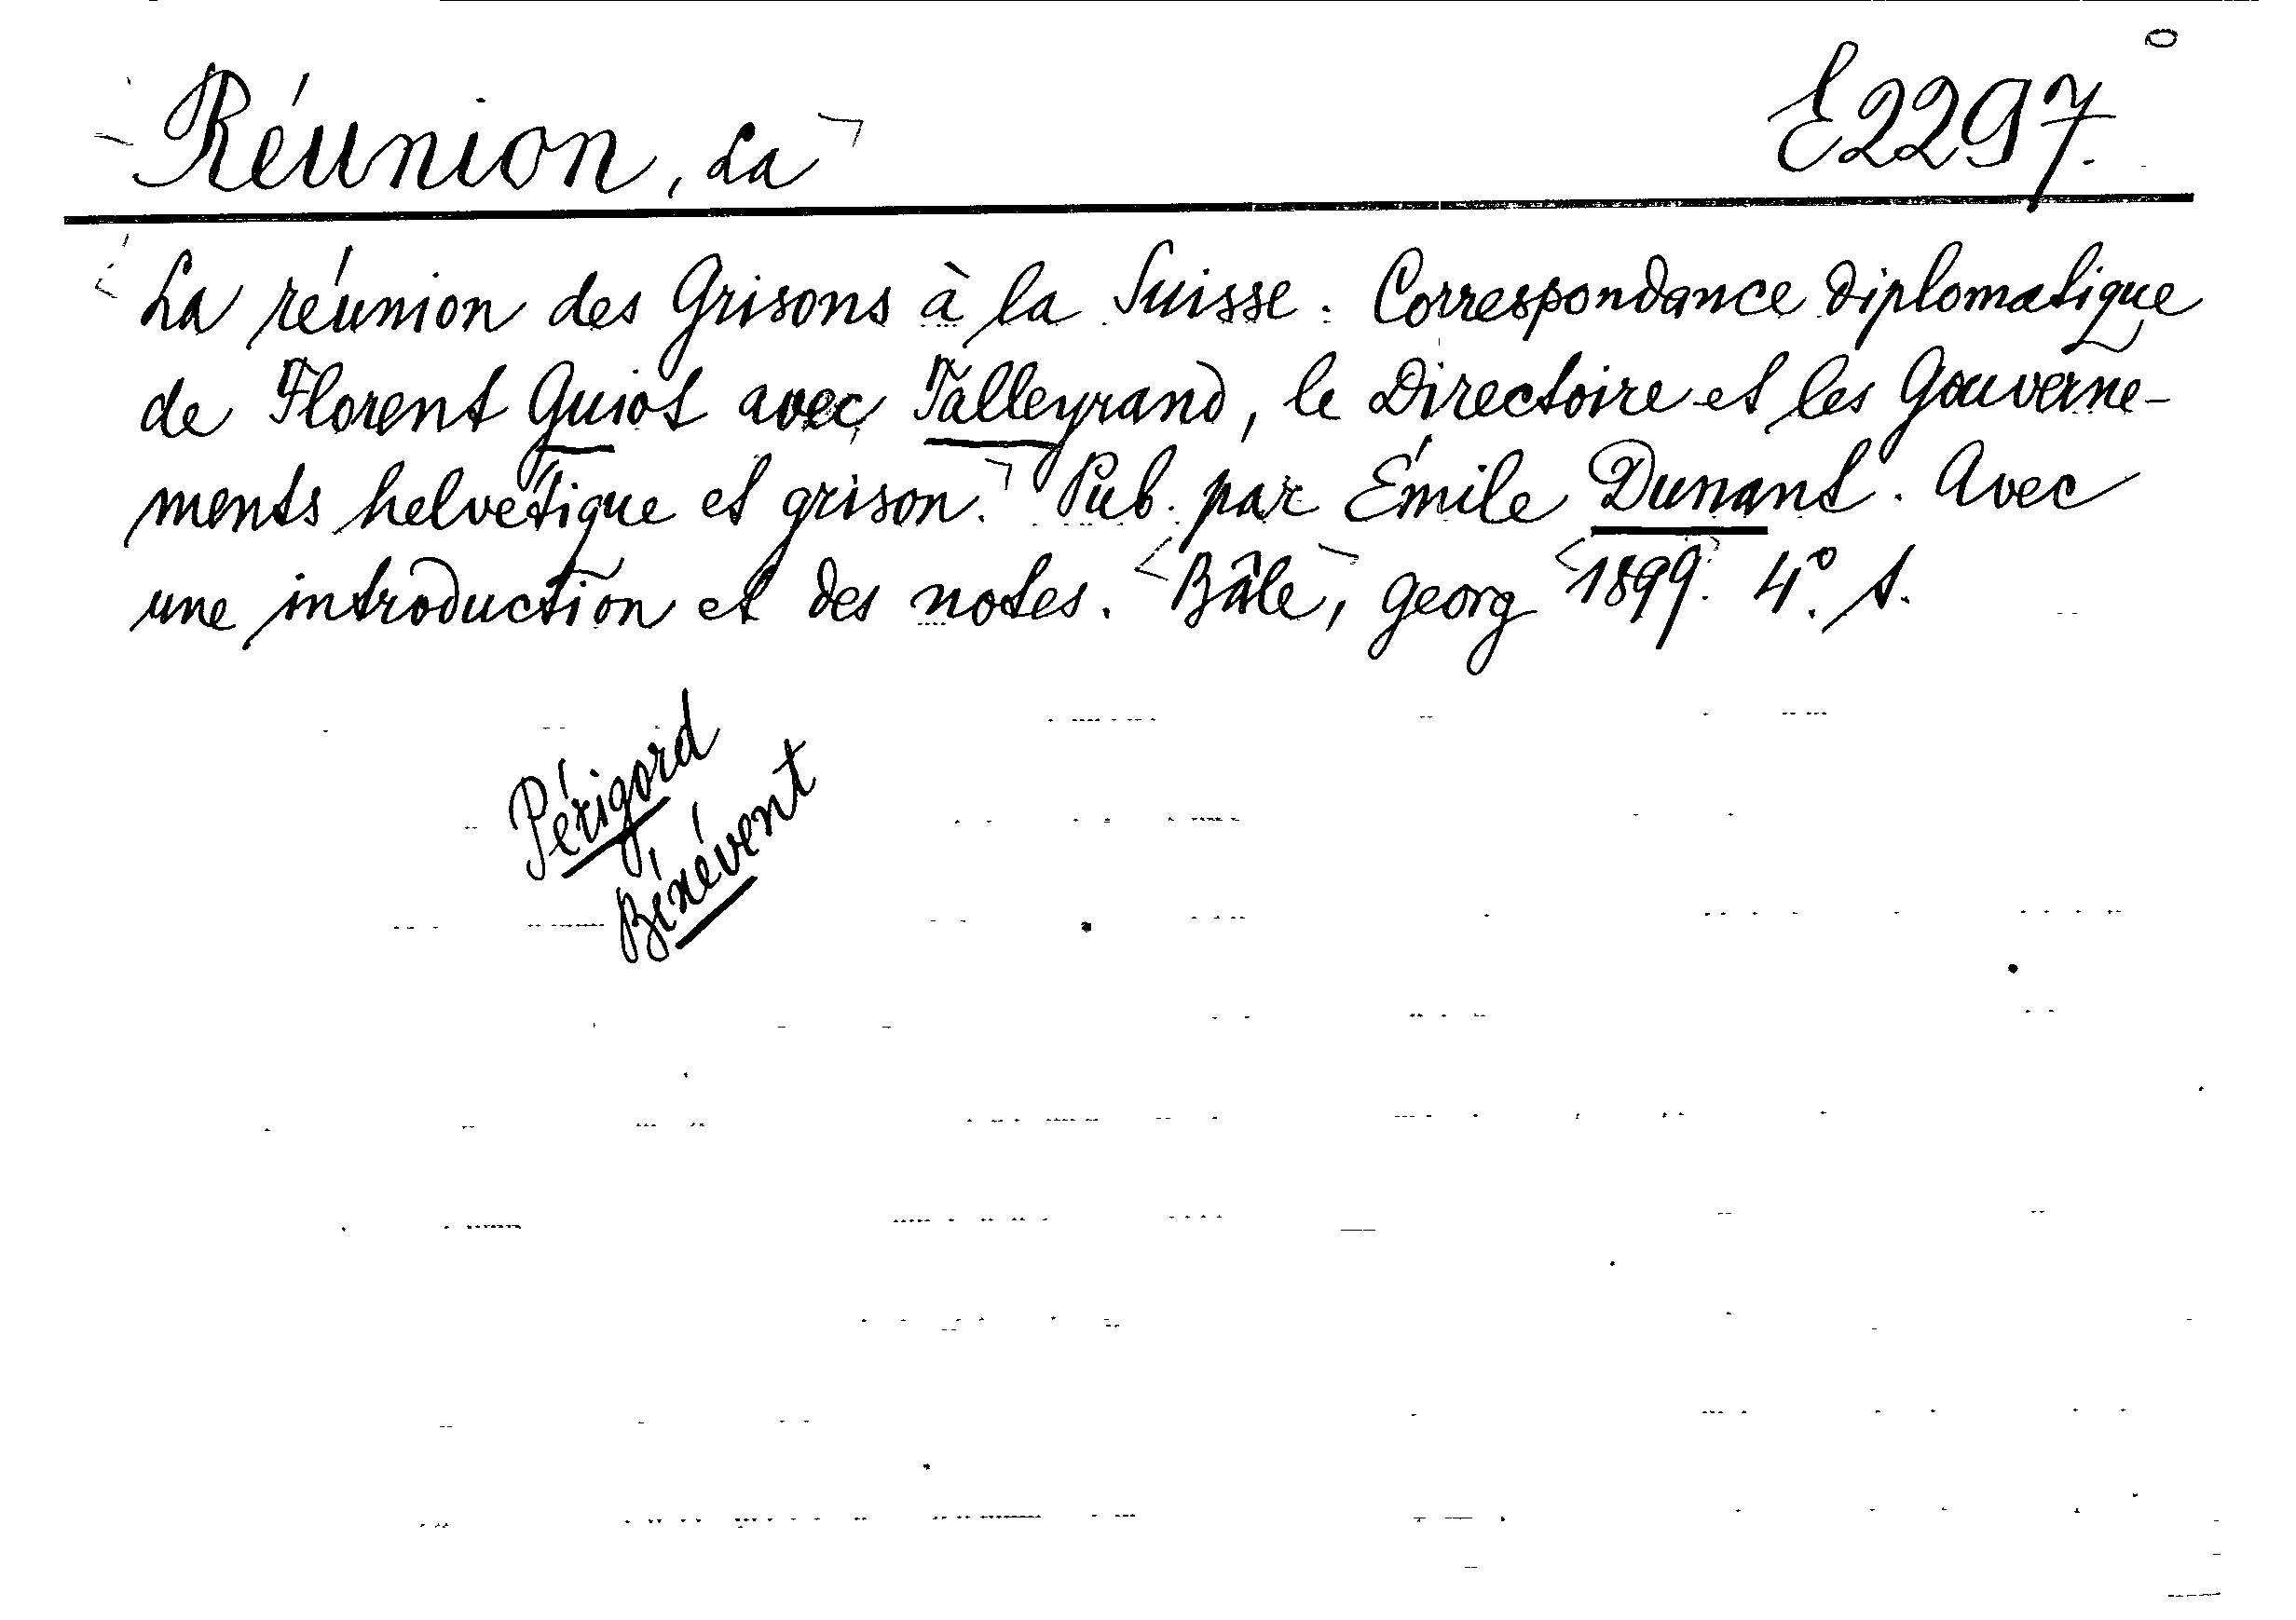 Réunion, La
E2297.
La réunion des Grisons à la Suisse. Correspondance diplomatique
de Florent Guiot avec Talleyrand, le Directoire et les Gouverne-
ments helvétique et grison. Pub. par Émile Dunant. Avec
une introduction et des notes. Bâle, Georg 1899. 4°.
Périgord
Bénévent